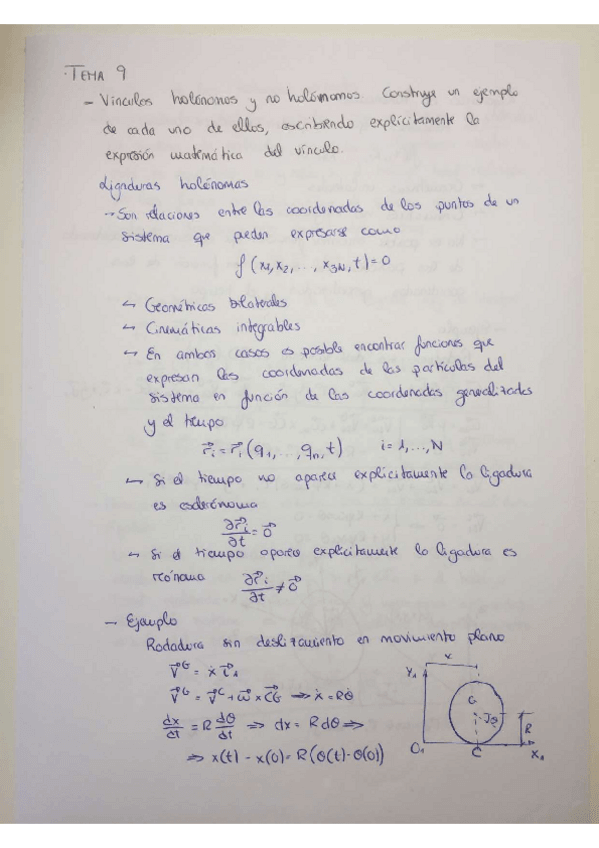 · TEMA 9
- Vínculos holónomos y no holónomos. Construye un ejemplo
de cada uno de ellos, escribiendo explícitamente la
expresión matemática del vínculo.
Ligaduras holónomas
→ Son relaciones entre las coordenadas de los puntos de un
sistema que pueden expresarse como
f(x₁,x₂,...,x₃N,t)=0
↳ Geométricas bilaterales
↳ Cinemáticas integrables
↳ En ambos casos es posible encontrar funciones que
expresan las coordenadas de las partículas del
sistema en función de las coordenadas generalizadas
y el tiempo
r⃗ᵢ = r⃗ᵢ(q₁,...,qₙ,t) i=1,...,N
↳ Si el tiempo no aparece explícitamente la ligadura
es esclerónoma
∂r⃗ᵢ/∂t = 0⃗
↳ Si el tiempo aparece explícitamente la ligadura es
reónoma ∂r⃗ᵢ/∂t ≠ 0⃗
- Ejemplo
Rodadura sin deslizamiento en movimiento plano
V⃗ᴳ = ẋ i⃗₁
V⃗ᴳ = V⃗ᶜ + ω⃗ × CG⃗ ⇒ ẋ = Rθ̇
dx/dt = R dθ/dt ⇒ dx = R dθ ⇒
⇒ x(t) - x(0) = R(θ(t) - θ(0))
x
Y₁
G
R
O₁
C
X₁